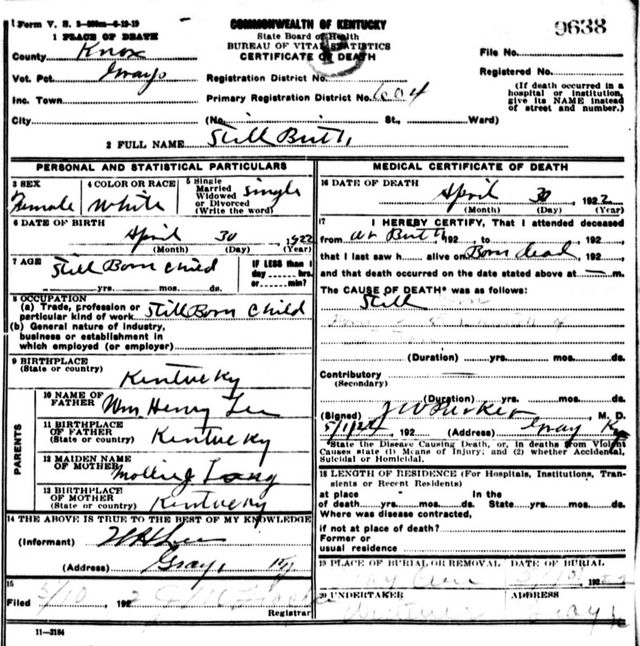 Form V. S. 2-200m-6-19-19
COMMONWEALTH OF KENTUCKY
State Board of Health
BUREAU OF VITAL STATISTICS
CERTIFICATE OF DEATH
9638
1 PLACE OF DEATH
County Knox
Vot. Pct. Grays
Inc. Town
City
Registration District No.
Primary Registration District No. 604
(No. St., Ward)
File No.
Registered No.
(If death occurred in a
hospital or institution,
give its NAME instead
of street and number.)
2 FULL NAME Still Birth
PERSONAL AND STATISTICAL PARTICULARS
3 SEX
Female
4 COLOR OR RACE
White
5 Single
Married
Widowed
or Divorced
(Write the word)
Single
6 DATE OF BIRTH
April 30 1922
(Month) (Day) (Year)
7 AGE
Still Born Child
yrs. mos. ds.
IF LESS than 1
day hrs.
or min?
8 OCCUPATION
(a) Trade, profession or
particular kind of work Still Born Child
(b) General nature of industry,
business or establishment in
which employed (or employer)
9 BIRTHPLACE
(State or country)
Kentucky
PARENTS
10 NAME OF
FATHER
Wm Henry Lee
11 BIRTHPLACE
OF FATHER
(State or country)
Kentucky
12 MAIDEN NAME
OF MOTHER
Mollie
13 BIRTHPLACE
OF MOTHER
(State or country)
Kentucky
14 THE ABOVE IS TRUE TO THE BEST OF MY KNOWLEDGE
(Informant) W H Lee
(Address) Grays Ky
15
Filed 5/10 192
Registrar
11-3184
MEDICAL CERTIFICATE OF DEATH
16 DATE OF DEATH
April 30 1922
(Month) (Day) (Year)
17 I HEREBY CERTIFY, That I attended deceased
from at Birth 192 , to 192 ,
that I last saw h alive on Born dead, 192 ,
and that death occurred on the date stated above at — m.
The CAUSE OF DEATH* was as follows:
Still
(Duration) yrs. mos. ds.
Contributory
(Secondary)
(Duration) yrs. mos. ds.
(Signed) J W Parker M. D.
5/1/22 (Address) Gray Ky
*State the Disease Causing Death, or, in deaths from Violent
Causes state (1) Means of Injury; and (2) whether Accidental,
Suicidal or Homicidal.
18 LENGTH OF RESIDENCE (For Hospitals, Institutions, Tran-
sients or Recent Residents)
at place In the
of death yrs. mos. ds. State yrs. mos. ds.
Where was disease contracted,
if not at place of death?
Former or
usual residence
19 PLACE OF BURIAL OR REMOVAL DATE OF BURIAL
192
20 UNDERTAKER ADDRESS